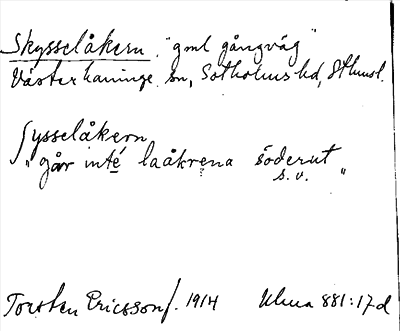 Skysselåkern. "gml gångväg"
Västerhaninge sn, Sotholms hd, Sthmsl.
Sysselåkern
"går inté laåkrena söderut"
s.v.
Torsten Ericsson f. 1914 Uma 881:17d